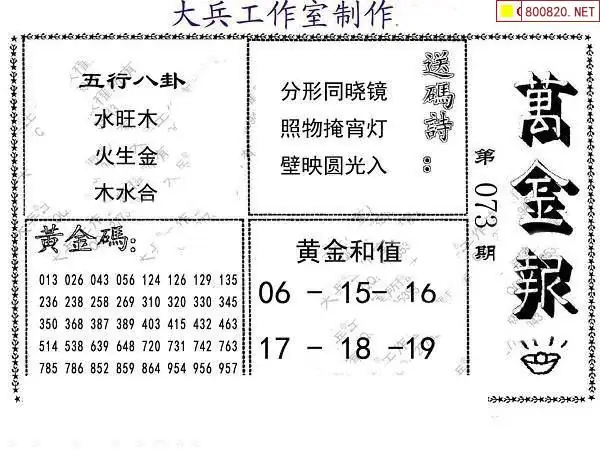 大兵工作室制作
800820.NET
五行八卦
水旺木
火生金
木水合
送碼詩:
分形同晓镜
照物掩宵灯
壁映圆光入
萬金報
第073期
黃金碼:
013 026 043 056 124 126 129 135
236 238 258 269 310 320 330 345
350 368 387 389 403 415 432 463
514 538 639 648 720 731 742 763
785 786 852 859 864 954 956 957
黄金和值
06 - 15- 16
17 - 18 -19